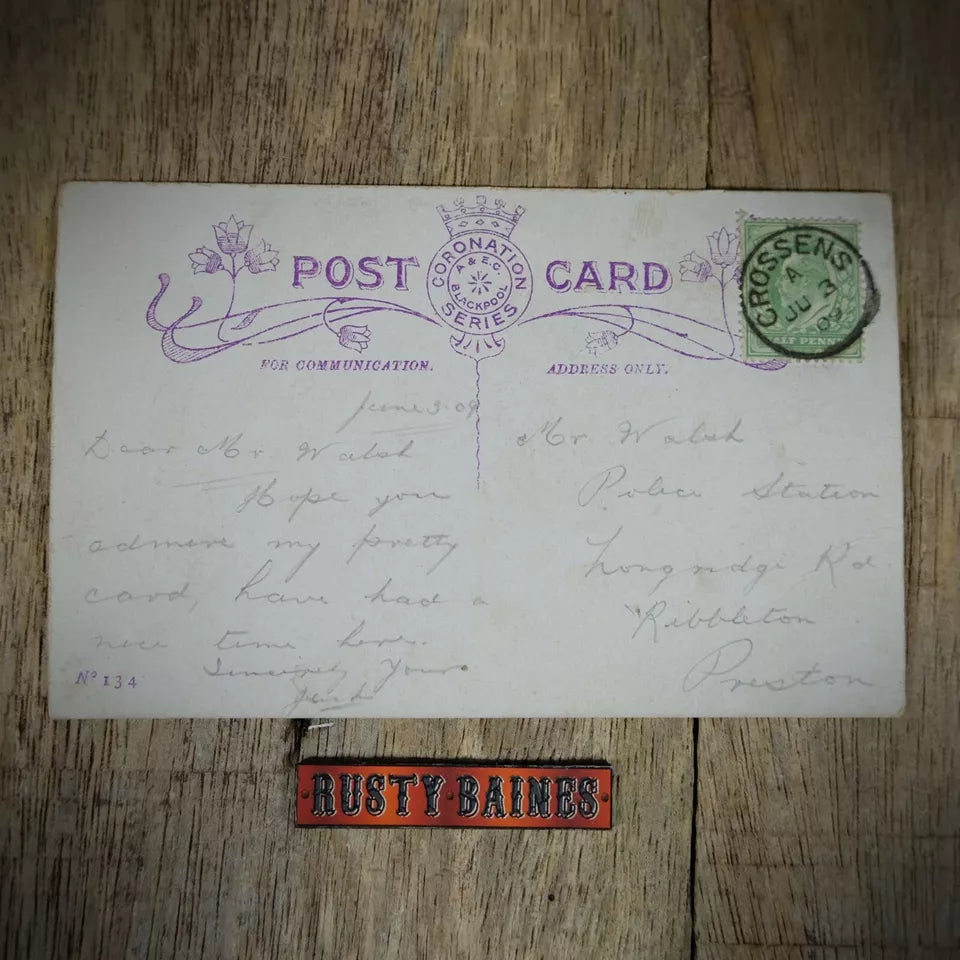 POST CARD
CORONATION SERIES
A & E.C. BLACKPOOL
CROSSENS
A
JU 3
09
HALF PENNY
FOR COMMUNICATION.
ADDRESS ONLY.
June 3. 09
Dear Mr. Walsh
Hope you
admire my pretty
card, have had a
nice time here.
Sincerely Yours
Mr Walsh
Police Station
Longridge Rd
Ribbleton
Preston
Nº 134
RUSTY BAINES